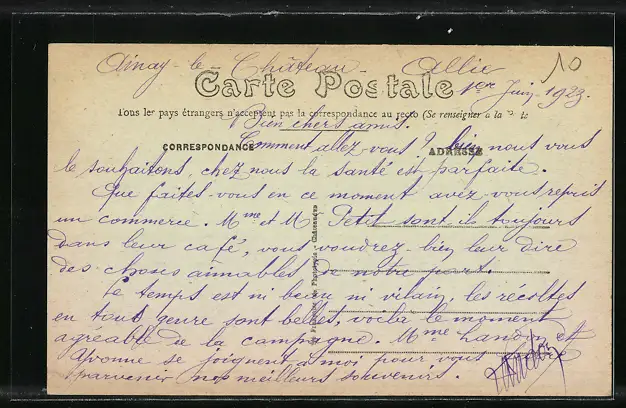 Ainay-le-Château - Allier
10
Carte Postale
1er Juin 1923.
Tous les pays étrangers n'acceptent pas la correspondance au recto (Se renseigner à la
Bien chers amis.
CORRESPONDANCE
ADRESSE
Comment allez-vous ? bien nous vous
le souhaitons, chez nous la santé est parfaite.
Que faites-vous en ce moment avez-vous repris
un commerce. Mme et M Petit sont il toujours
dans leur café, vous voudrez-bien leur dire
des choses aimables de notre part.
Le temps est ni beau ni vilain, les récoltes
en tous genre sont belles, voila le moment
agréable de la campagne. Mme Landoin et
Yvonne se joignent a moi pour vous faire
parvenir nos meilleurs souvenirs.
Phototypie - Châteauroux